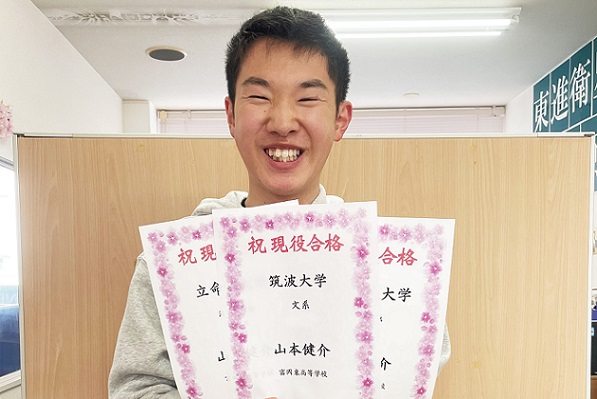 東進衛
祝 現
立命
山
祝 現役合格
筑波大学
文系
山本健介
富岡東高等学校
合格
大学
介